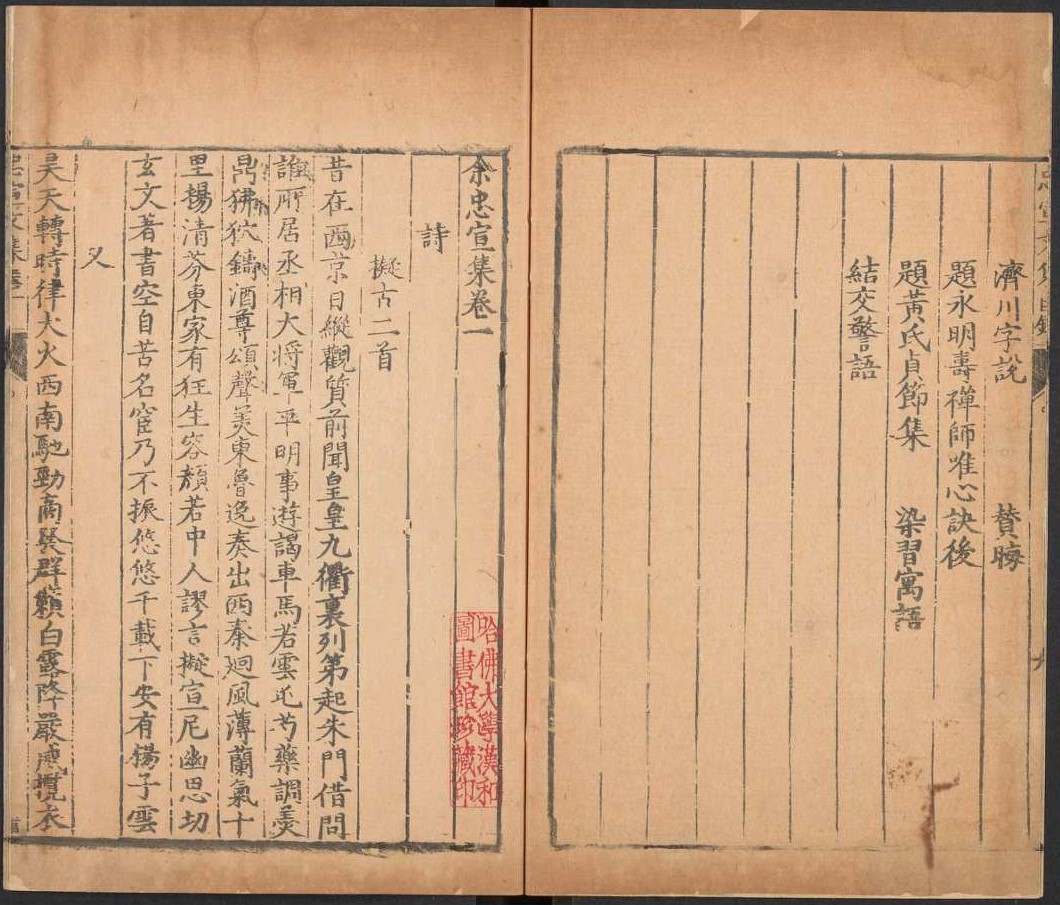 濟川字說　贊晦
題永明壽禪師唯心訣後
題黃氏貞節集　染習寓語
結交警語
九
余忠宣集卷一
詩
擬古二首
昔在西京日縱觀質前聞皇皇九衢裏列第起朱門借問
誰所居丞相大將軍平明事遊謁車馬若雲屯芍藥調羹
鼎狒狖鑄酒尊頌聲美東魯逸奏出西秦迴風薄蘭氣十
里楊清芬東家有狂生容顏若中人謬言擬宣尼幽思切
玄文著書空自苦名宦乃不振悠悠千載下安有楊子雲
又
昊天轉時律大火西南馳勁商發群籟白露降嚴威攬衣
哈佛大學漢和
圖書館珍藏印